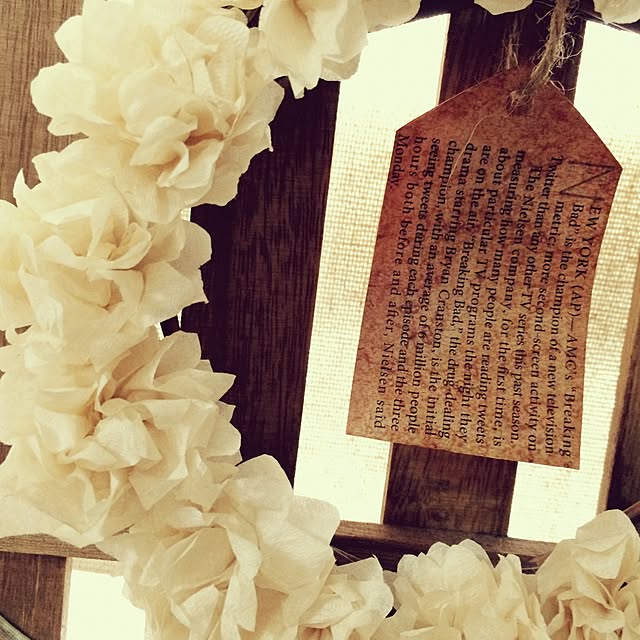 NEW YORK (AP)—AMC's 'Breaking
Bad' is the champion of a new television
metric: more second-screen activity on
Twitter than any other TV series the past season.
The Nielsen company, for the first time, is
measuring how many people are reading tweets
about particular TV programs the night that
are on the air. 'Breaking Bad,' the drug-dealing
drama starring Bryan Cranston, is the initial
champion, with an average of 6 million people
seeing tweets during each episode and the three
hours both before and after, Nielsen said
Monday.